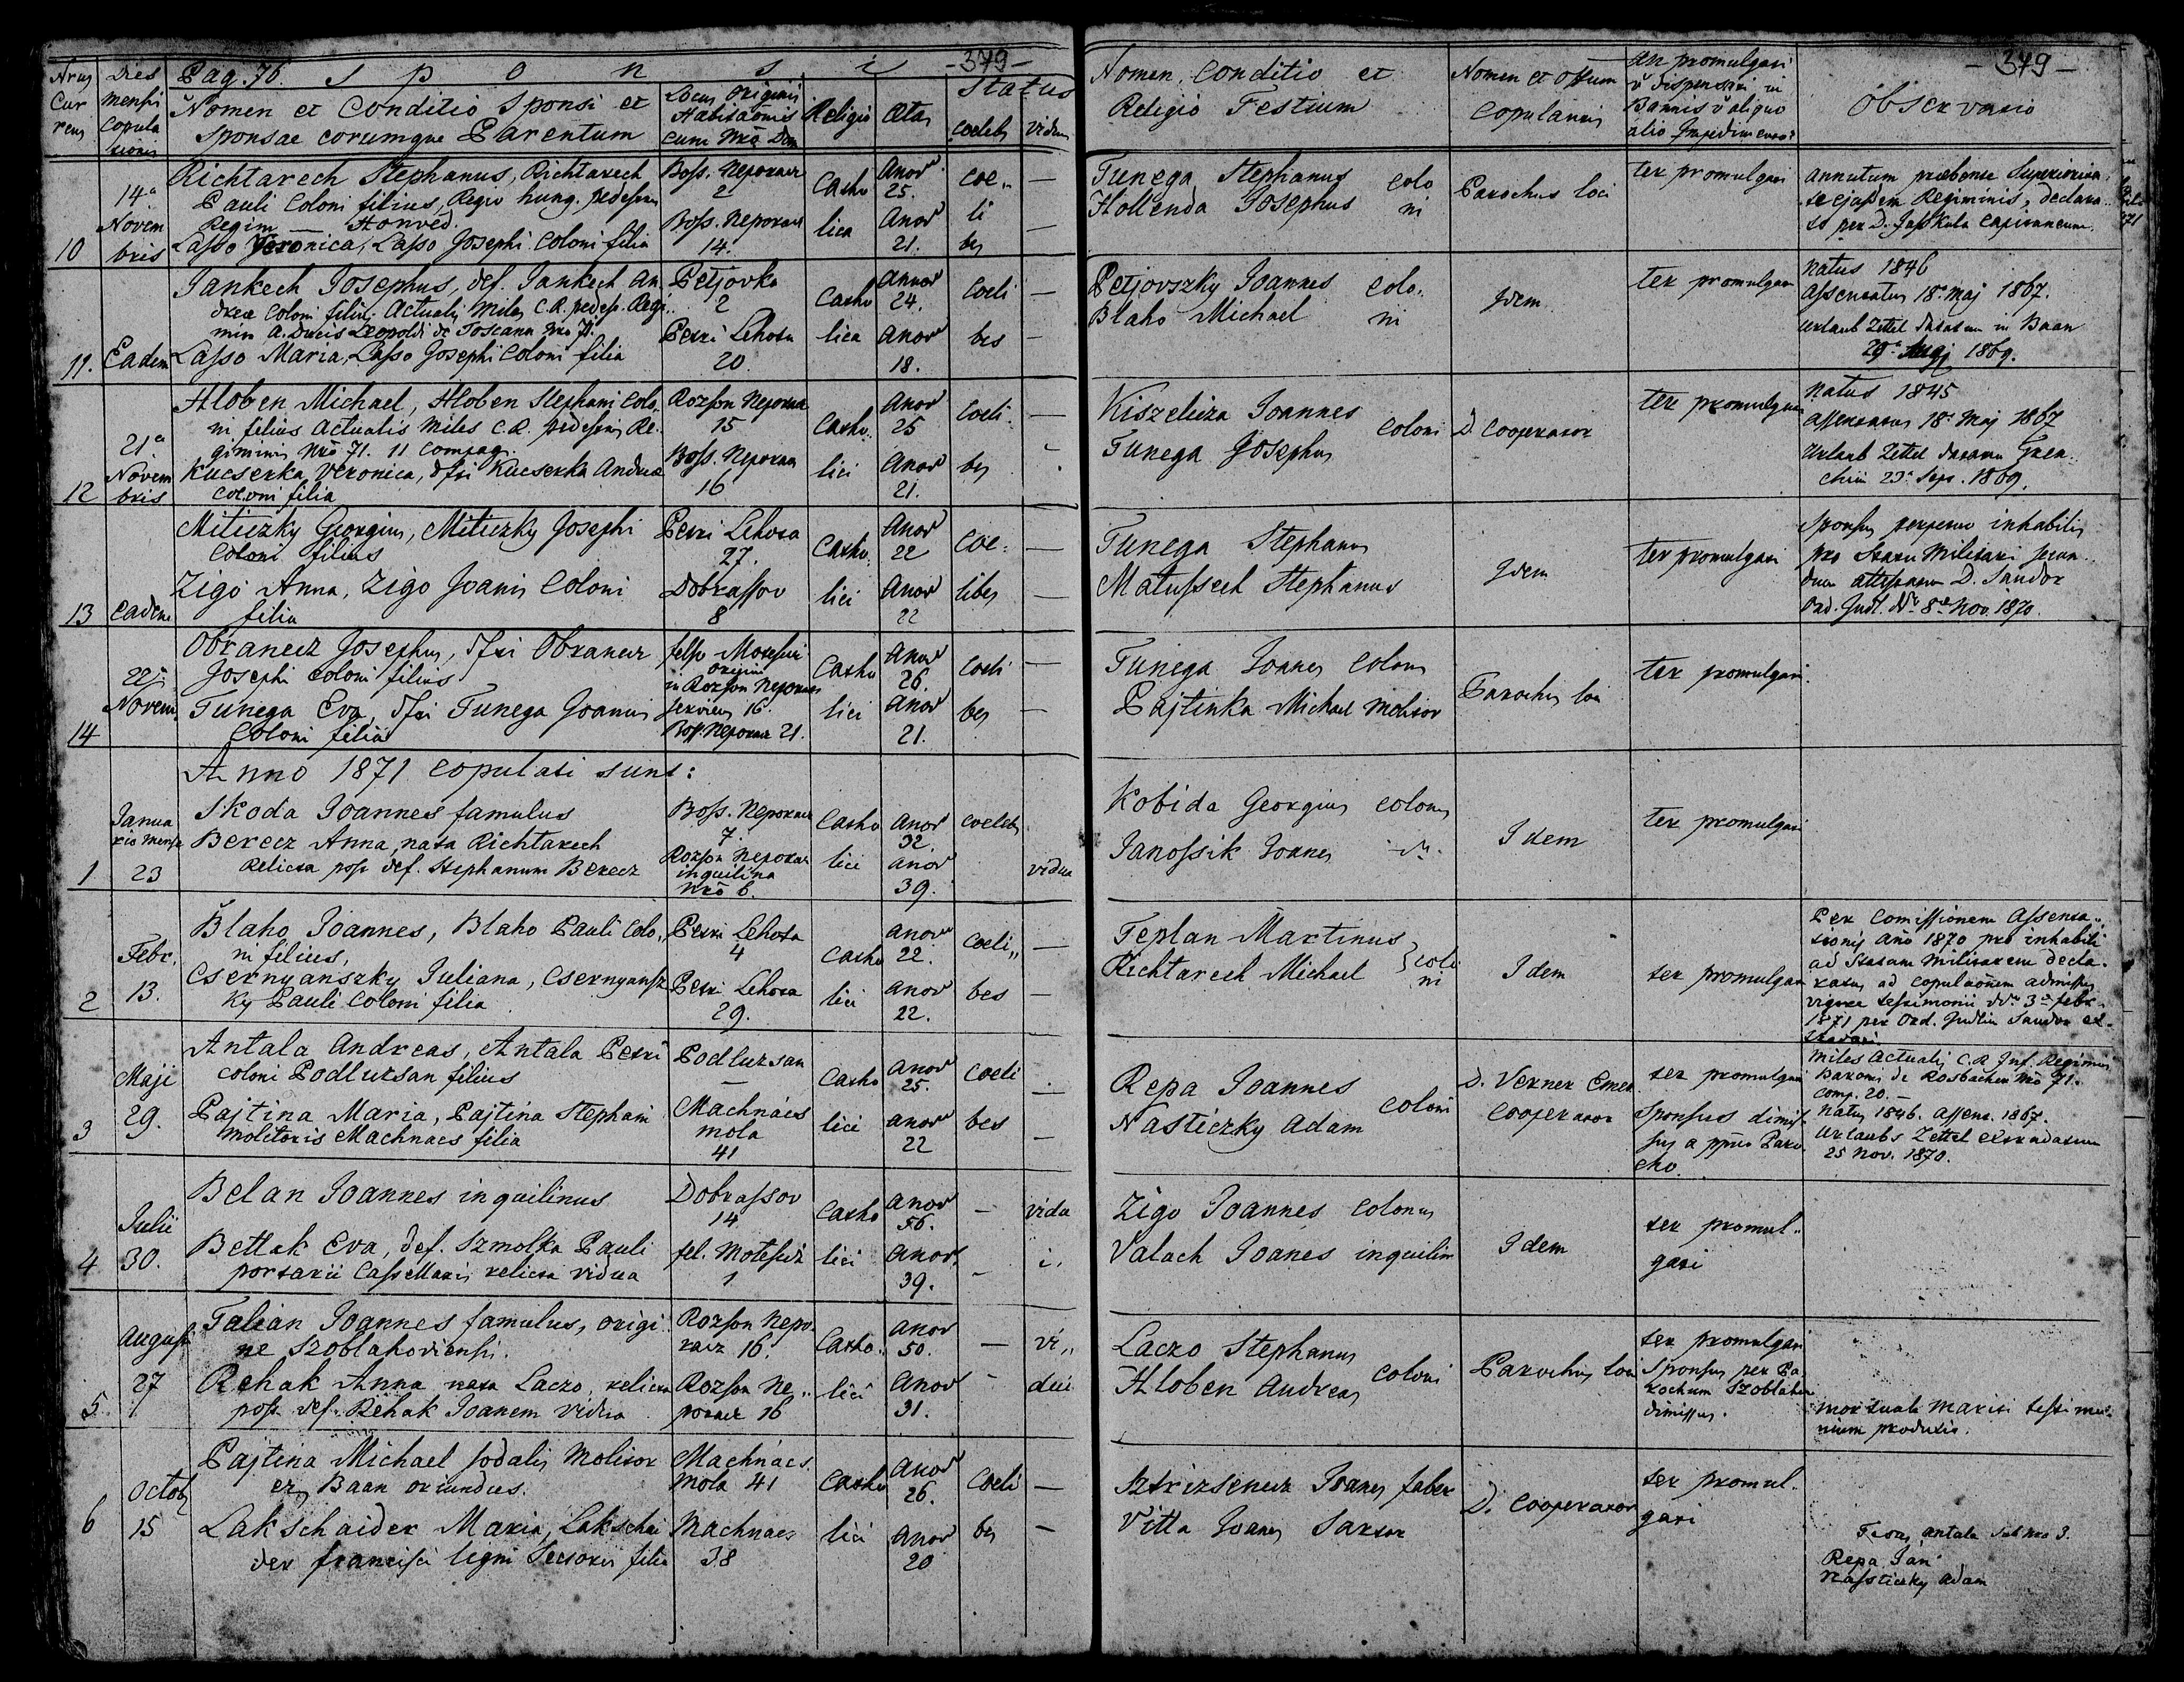 Pag. 76. S p o n s i - 379 -
Nrus Currens
Dies mensis Copulationis
Nomen et Conditio Sponsi et
Sponsae eorumque Parentum
Locus Originis
Habitaonis
cum Nro Dom
Religio
Ætas
Status
Coelebs
viduus
Nomen, Conditio et
Religio Testium
Nomen et Offium
Copulantis
an promulgati
v̄ dispensati in
Bannis v̄ aliquo
alio Impedimento?
- 379 -
Observatio
10
14a
Novem
bris
Richtarech Stephanus, Richtarech
Pauli Coloni filius, Regio hung. pedestris
Regim — Honvéd.
Lasso Veronica, Lasso Josephi Coloni filia
Boss. Neporacz
2
Boss. Neporacz
14.
Catho
lica
Anor
25.
Anor
21.
Coe„
li
bes
—
—
Tunega Stephanus colo
Hollenda Josephus ni
Parochus loci
ter promulgati
annutum præbente Superiorita
te ejusdem Regiminis, declara
to per D. Jasskula Capitaneum.
11.
Eadem
Jankech Josephus, def. Jankech An
dreæ Coloni filius. Actualis Miles C.R. pedest. Regi
min A. Ducis Leopoldi de Toscana Nro 71.
Lasso Maria, Lasso Josephi Coloni filia
Petjovka
2
Petri Lehota
20.
Catho
lica
Annor
24.
Anor
18.
Coeli
bes
—
—
Petjovszky Joannes Colo„
Blaho Michael ni
Idem
ter promulgati
Natus 1846
Assentatus 18a Maj 1867.
Urlaub Zettel datatum in Baan
29a Augj 1869.
12
21a
Novem
bris
Hloben Michael, Hloben Stephani Colo
ni filius Actualis Miles C.R. pedestris Re
giminis Nro 71. 11 Compag.
Kucserka Veronica, dfti Kucserka Andreæ
Coloni filia
Rozson Neporacz
15
Boss. Neporacz
16
Catho„
lici
Anor
25
Anor
21.
Coeli
bes
—
Kiszelicza Joannes
Tunega Josephus
Coloni
D. Cooperator
ter promulgati
Natus 1845
Assentatus 18a Maj 1867
Urlaub Zettel datatum Tren
chin 23a Sept. 1869.
13
Eadem
Miticzky Georgius, Miticzky Josephi
Coloni filius
Zigo Anna, Zigo Joanis Coloni
filia
Petri Lehota
27.
Dobrassov
8
Catho„
lici
Anor
22
Anor
22
Coe„
libes
—
—
Tunega Stephanus
Matussech Stephanus
Idem
ter promulgati
Sponsus perpetuo inhabilis
pro Statu Militari secun
dum attestatum D. Sandor
Ord. Judl. ddo 8a Nov. 1870.
14
22a
Novem
Obranecz Josephus, dfti Obranecz
Josephi coloni filius
Tunega Eva, dfti Tunega Joanis
Coloni filia
felso Motesicz
origine
in Rozson Neporacz
serviens 16.
Boss. Neporacz 21.
Catho
lici
Anor
26.
Anor
21.
Coeli
bes
—
—
Tunega Joanes Colonus
Pajtinka Michael Molitor
Parochus loci
ter promulgati
Anno 1871 copulati sunt:
1
Janua
rio mense
23
Skoda Joannes famulus
Berecz Anna, nata Richtarech
Relicta post def. Stephanum Berecz
Boss. Neporacz
7.
Rozson Neporacz
inquilina
Nro 6.
Catho
lici
Anor
32.
Anor
39.
Coelebs
vidua
Kobida Georgius Colonus
Janossik Joanes do
Idem
ter promulgati
2
Febr.
13.
Blaho Joannes, Blaho Pauli Colo„
ni filius,
Csernyanszky Juliana, Csernyansz
ky Pauli Coloni filia
Petri Lehota
4
Petri Lehota
29.
Catho
lici
Anor
22.
Anor
22.
Coeli„
bes
—
—
Teplan Martinus
Richtarech Michael
} colo
ni
Idem
ter promulgati
Per Comissionem Assenta„
tionis Ao 1870 pro inhabili
ad Statum Militarem decla
ratus ad copulaonem admissus
vigore testimonii ddo 3a febr.
1871 per Ord. Judlium Sandor ex
tradati
3
Maji
29.
Antala Andreas, Antala Petri
Coloni Podlutsan filius
Pajtina Maria, Pajtina Stephani
Molitoris Machnacs filia
Podluzsan
—
Machnács
mola
41
Catho
lici
Anor
25.
Anor
22
Coeli
bes
—
—
Repa Joannes
Nasticzky Adam
Coloni
D. Verner Emer
Cooperator
ter promulgati
Sponsus dimis
sus a pprio Paro
cho.
Miles Actualis C.R. Inf. Regiminis
Baronis de Rosbacher Nro 71.
Comp. 20. —
Natus 1846. Assent. 1867.
Urlaubs Zettel extradatum
25 Nov. 1870.
4
Julii
30.
Belan Joannes inquilinus
Betlak Eva, def. Szmolka Pauli
portarii Cassellaris relicta vidua
Dobrassov
14
fel. Motesicz
1
Catho
lici
Anor
56.
Anor.
39.
—
—
vidu
i.
Zigo Joannes Colonus
Valach Joanes inquilin
Idem
ter promul„
gati
5
August
27
Talian Joannes famulus, origi
ne Szoblahoviensis.
Rehak Anna nata Laczo, relicta
post def. Rehak Joanem vidua
Rozson Nepo
racz 16.
Rozson Ne„
poracz 16
Catho„
lici
Anor
50.
Anor
31.
—
vi„
dui
Laczo Stephanus
Hloben Andreas
Coloni
Parochus loci
ter promulgati
Sponsus per Pa
rochum Szoblaho
dimissus.
mortuale mariti testimo
nium produxit.
6
Octob
15
Pajtina Michael sodalis Molitor
ex Baan oriundus.
Lakschaider Maria, Lakschai
der francisci ligni Sectoris filia
Machnács
Mola 41
Machnacs
38
Catho
lici
Anor
26.
Anor
20
Coeli
bes
—
—
Joanes faber
Vitla Joanes Sartor
D. Cooperator
ter promul.
gati
Testes Antala sub Nro 3.
Repa Ján
Nasticzky Adam